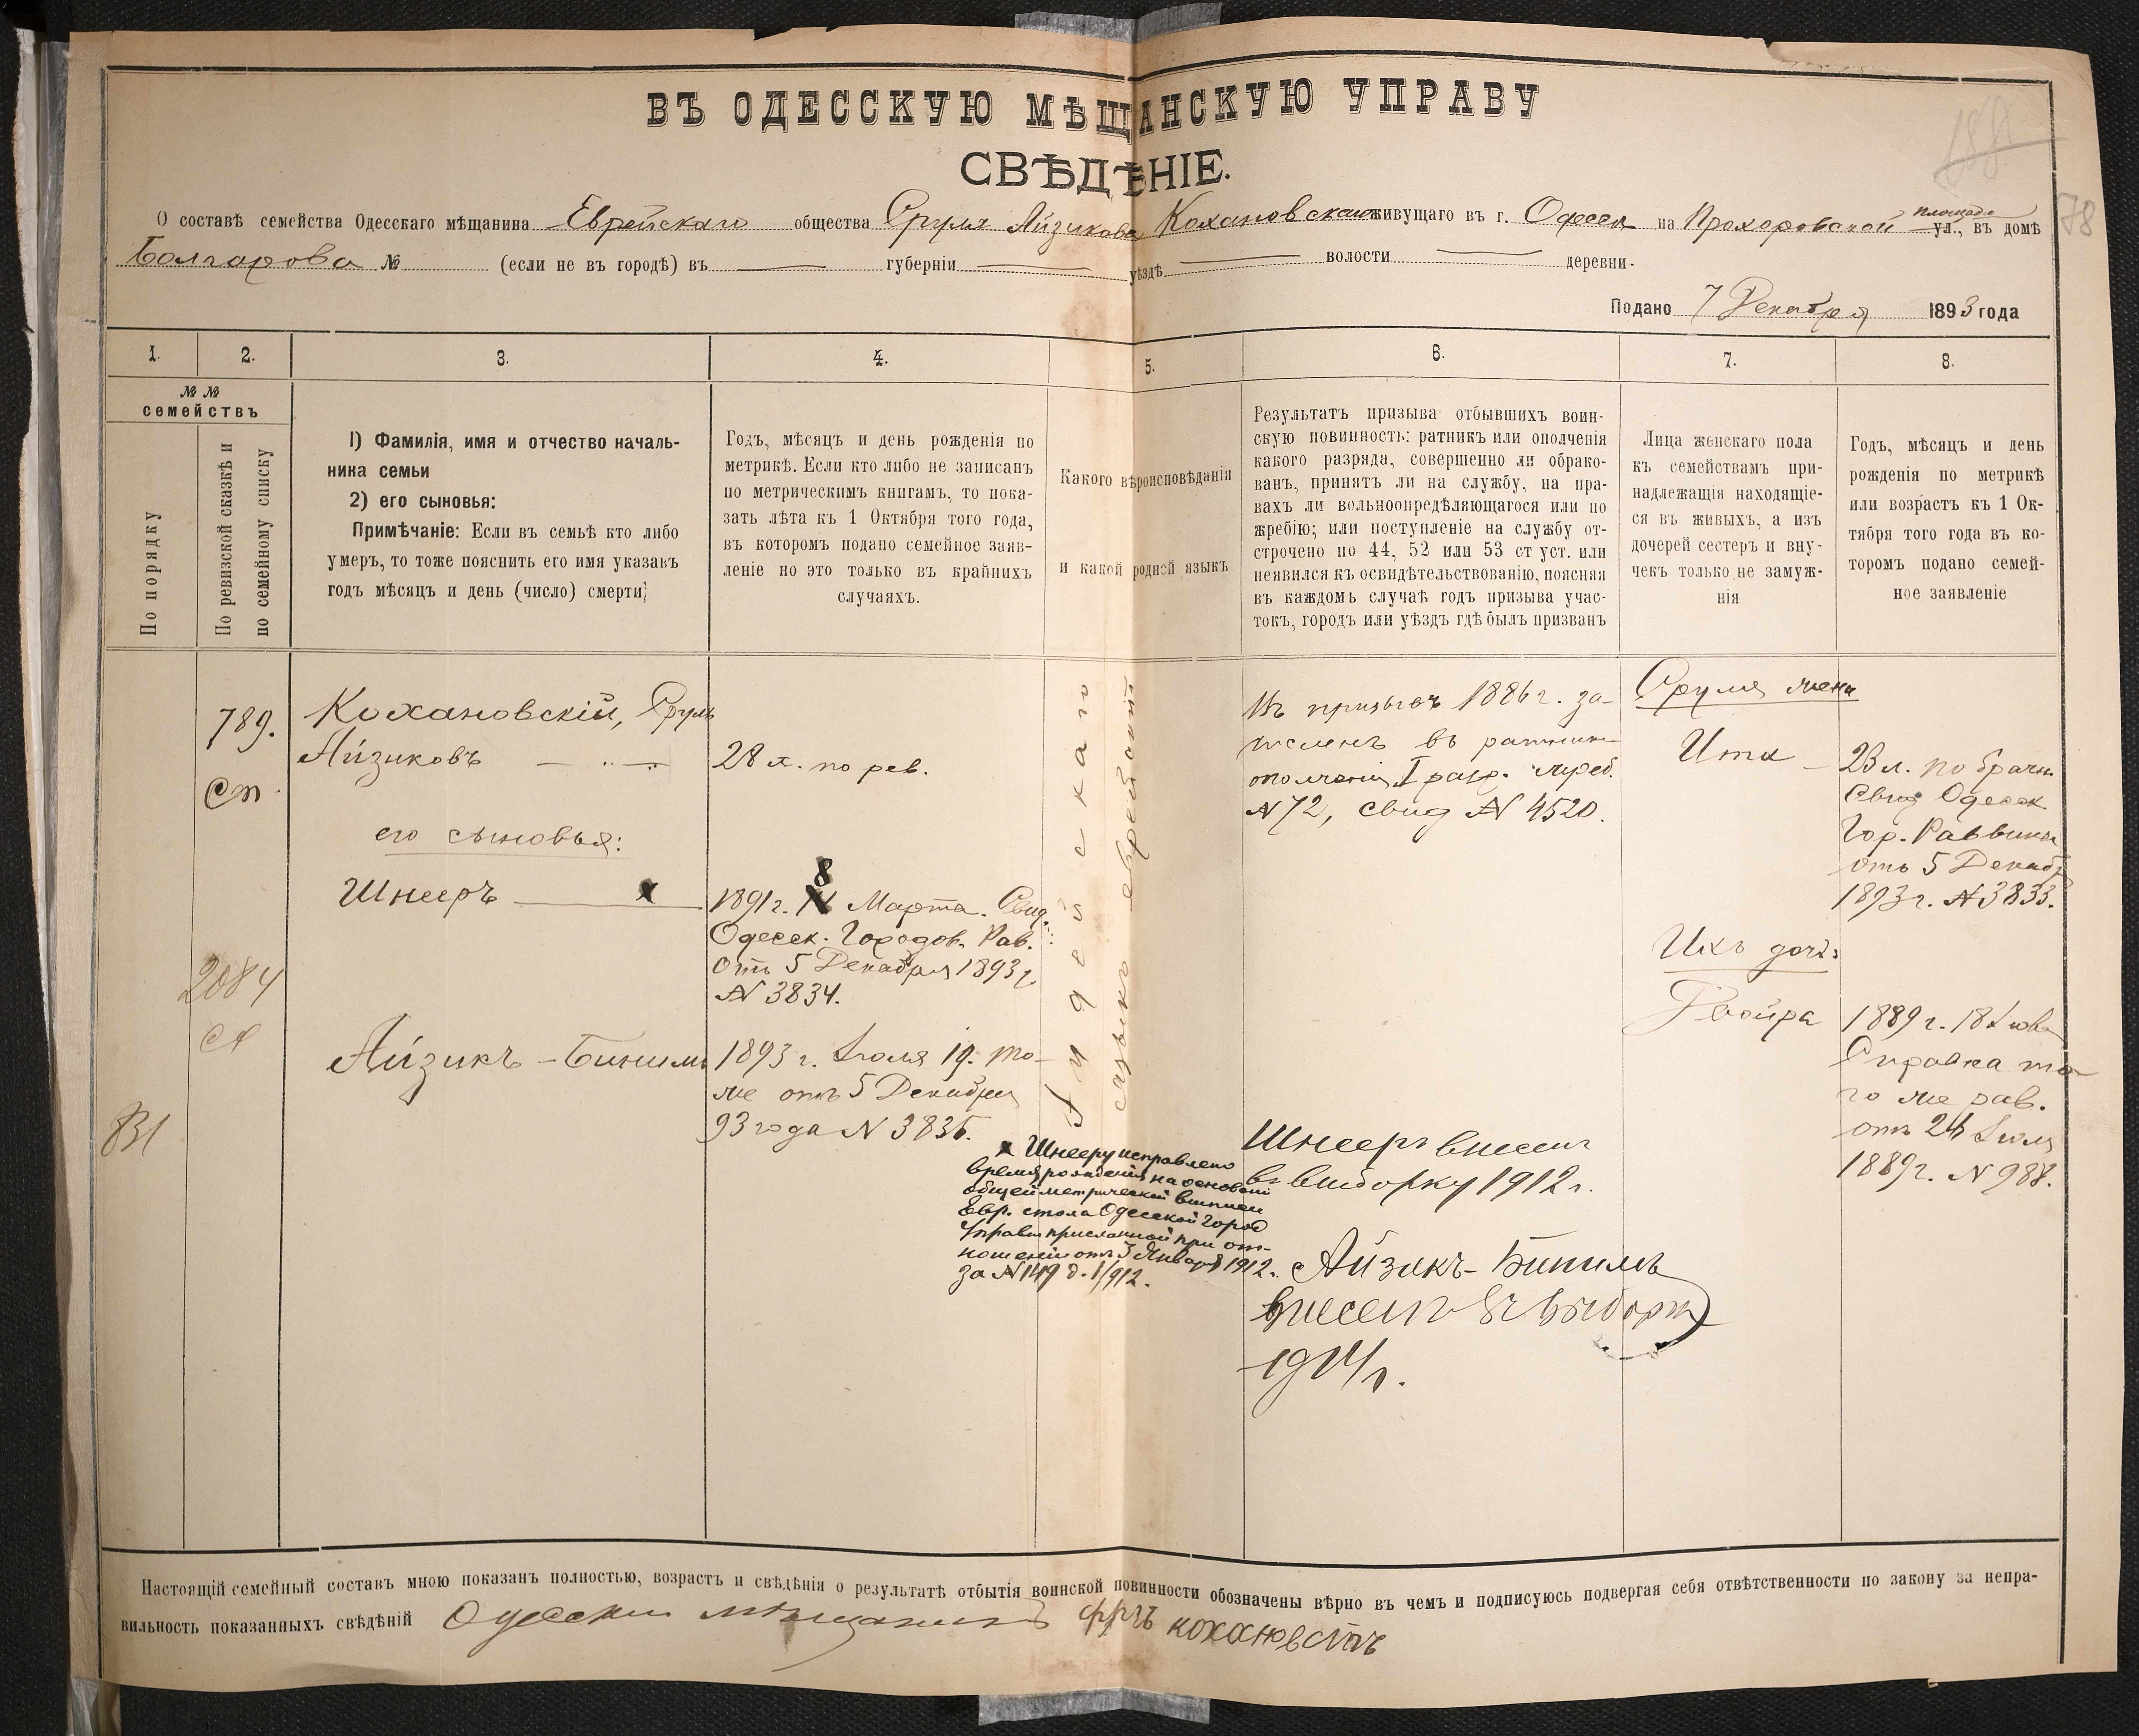 ВЪ ОДЕССКУЮ МѢЩАНСКУЮ УПРАВУ
СВѢДѢНІЕ.
О составѣ семейства Одесскаго мѣщанина Еврейскаго общества Сруля Айзикова Кохановскаго живущаго въ г. Одессѣ на Прохоровской площади ул., въ домѣ
Болгарова № (если не въ городѣ) въ — губерніи — уѣздѣ — волости — деревни.
Подано 7 Декабря 1893 года
78
1. 2. 3. 4. 5. 6. 7. 8.
№ №
семействъ
По порядку
По ревизской сказкѣ и
по семейному списку
1) Фамилія, имя и отчество началь-
ника семьи
2) его сыновья:
Примѣчаніе: Если въ семьѣ кто либо
умеръ, то тоже пояснить его имя указавъ
годъ мѣсяцъ и день (число) смерти
Годъ, мѣсяцъ и день рожденія по
метрикѣ. Если кто либо не записанъ
по метрическимъ книгамъ, то пока-
зать лѣта къ 1 Октября того года,
въ которомъ подано семейное заяв-
леніе но это только въ крайнихъ
случаяхъ.
Какого вѣроисповѣданія
и какой родной языкъ
Результатъ призыва отбывшихъ воин-
скую повинность: ратникъ или ополченія
какого разряда, совершенно ли обрако-
ванъ, принятъ ли на службу, на пра-
вахъ ли вольноопредѣляющагося или по
жребію; или поступленіе на службу от-
строчено по 44, 52 или 53 ст уст. или
неявился къ освидѣтельствованію, поясняя
въ каждомъ случаѣ годъ призыва учас-
токъ, городъ или уѣздъ гдѣ былъ призванъ
Лица женскаго пола
къ семействамъ при-
надлежащія находящіе-
ся въ живыхъ, а изъ
дочерей сестеръ и вну-
чекъ только не замуж-
нія
Годъ, мѣсяцъ и день
рожденія по метрикѣ
или возрастъ къ 1 Ок-
тября того года въ ко-
торомъ подано семей-
ное заявленіе
789.
Ст
2084
831
Кохановскій, Сруль
Айзиковъ
его сыновья:
Шнееръ x
Айзикъ-Бинимъ
28 л. по рев.
8
1891 г. Марта. Свид.
Одесск. Городов. Рав.
отъ 5 Декабря 1893 г.
№ 3834.
1893 г. Іюля 19. то-
же отъ 5 Декабря
93 года № 3835.
Іудейскаго
языкъ еврейскій
Въ призывѣ 1886 г. за-
численъ въ ратники
ополченія I разр. жреб.
№ 72, свид № 4520.
Сруля жена
Ита
23 л. по брачн.
Свид Одесск.
Гор. Раввина
отъ 5 Декабр
1893 г. № 3833.
Ихъ дочь
Двойра
1889 г. 18 Іюня
Справка то-
го же рав.
отъ 24 Іюля
1889 г. № 988.
x Шнееру исправлено
время рожденія на основаніи
общей метрической выписи
Евр. стола Одесской Город
Управы присланной при от-
ношеніи отъ 3 Января 1912 г.
за № 149 д. 1/912.
Шнееръ внесенъ
въ выборку 1912 г.
Айзикъ-Бинимъ
внесенъ въ выборку
1914 г.
Настоящій семейный составъ мною показанъ полностью, возрастъ и свѣдѣнія о результатѣ отбытія воинской повинности обозначены вѣрно въ чемъ и подписуюсь подвергая себя отвѣтственности по закону за непра-
вильность показанныхъ свѣдѣній Одесскій мѣщанинъ